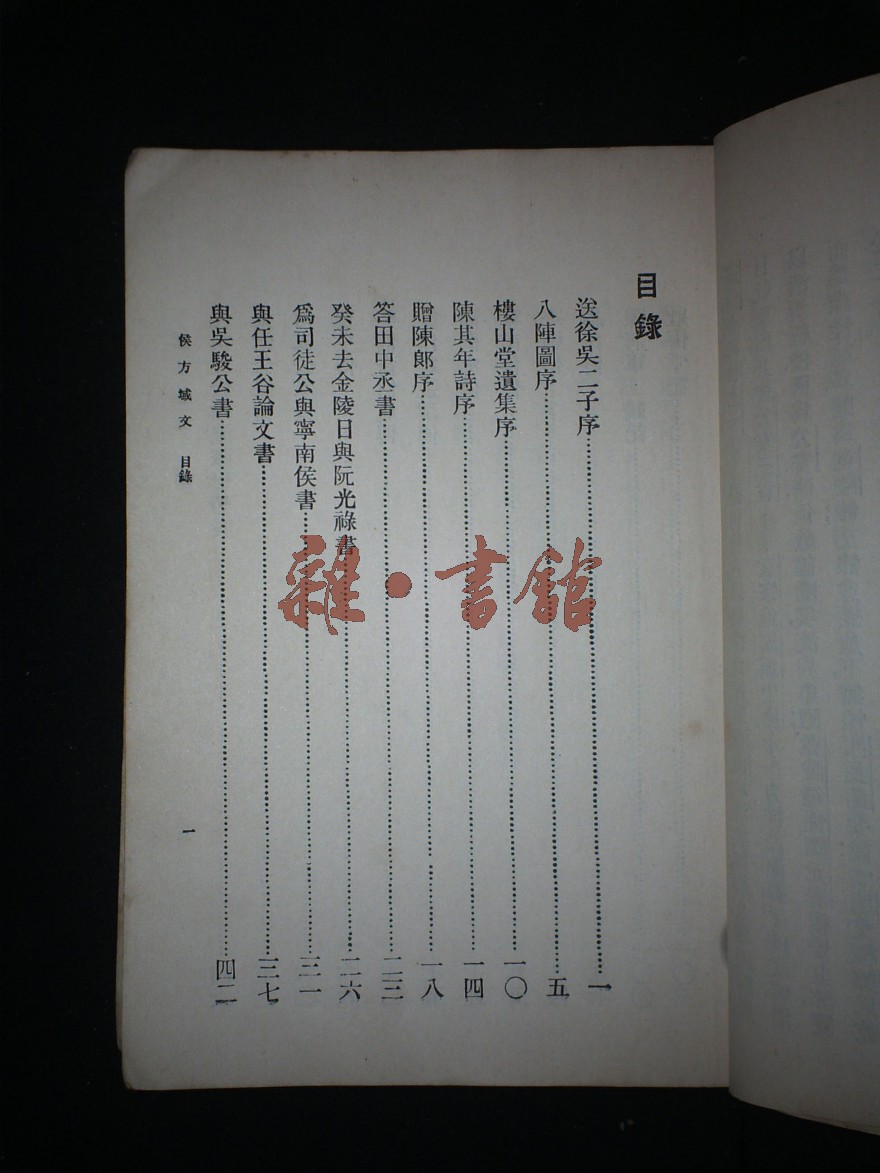 目錄
送徐吳二子序……一
八陣圖序……五
樓山堂遺集序……一〇
陳其年詩序……一四
贈陳郎序……一八
答田中丞書……二三
癸未去金陵日與阮光祿書……二六
爲司徒公與寧南侯書……三一
與任王谷論文書……三七
與吳駿公書……四二
侯方域文 目錄 一
雜·書館